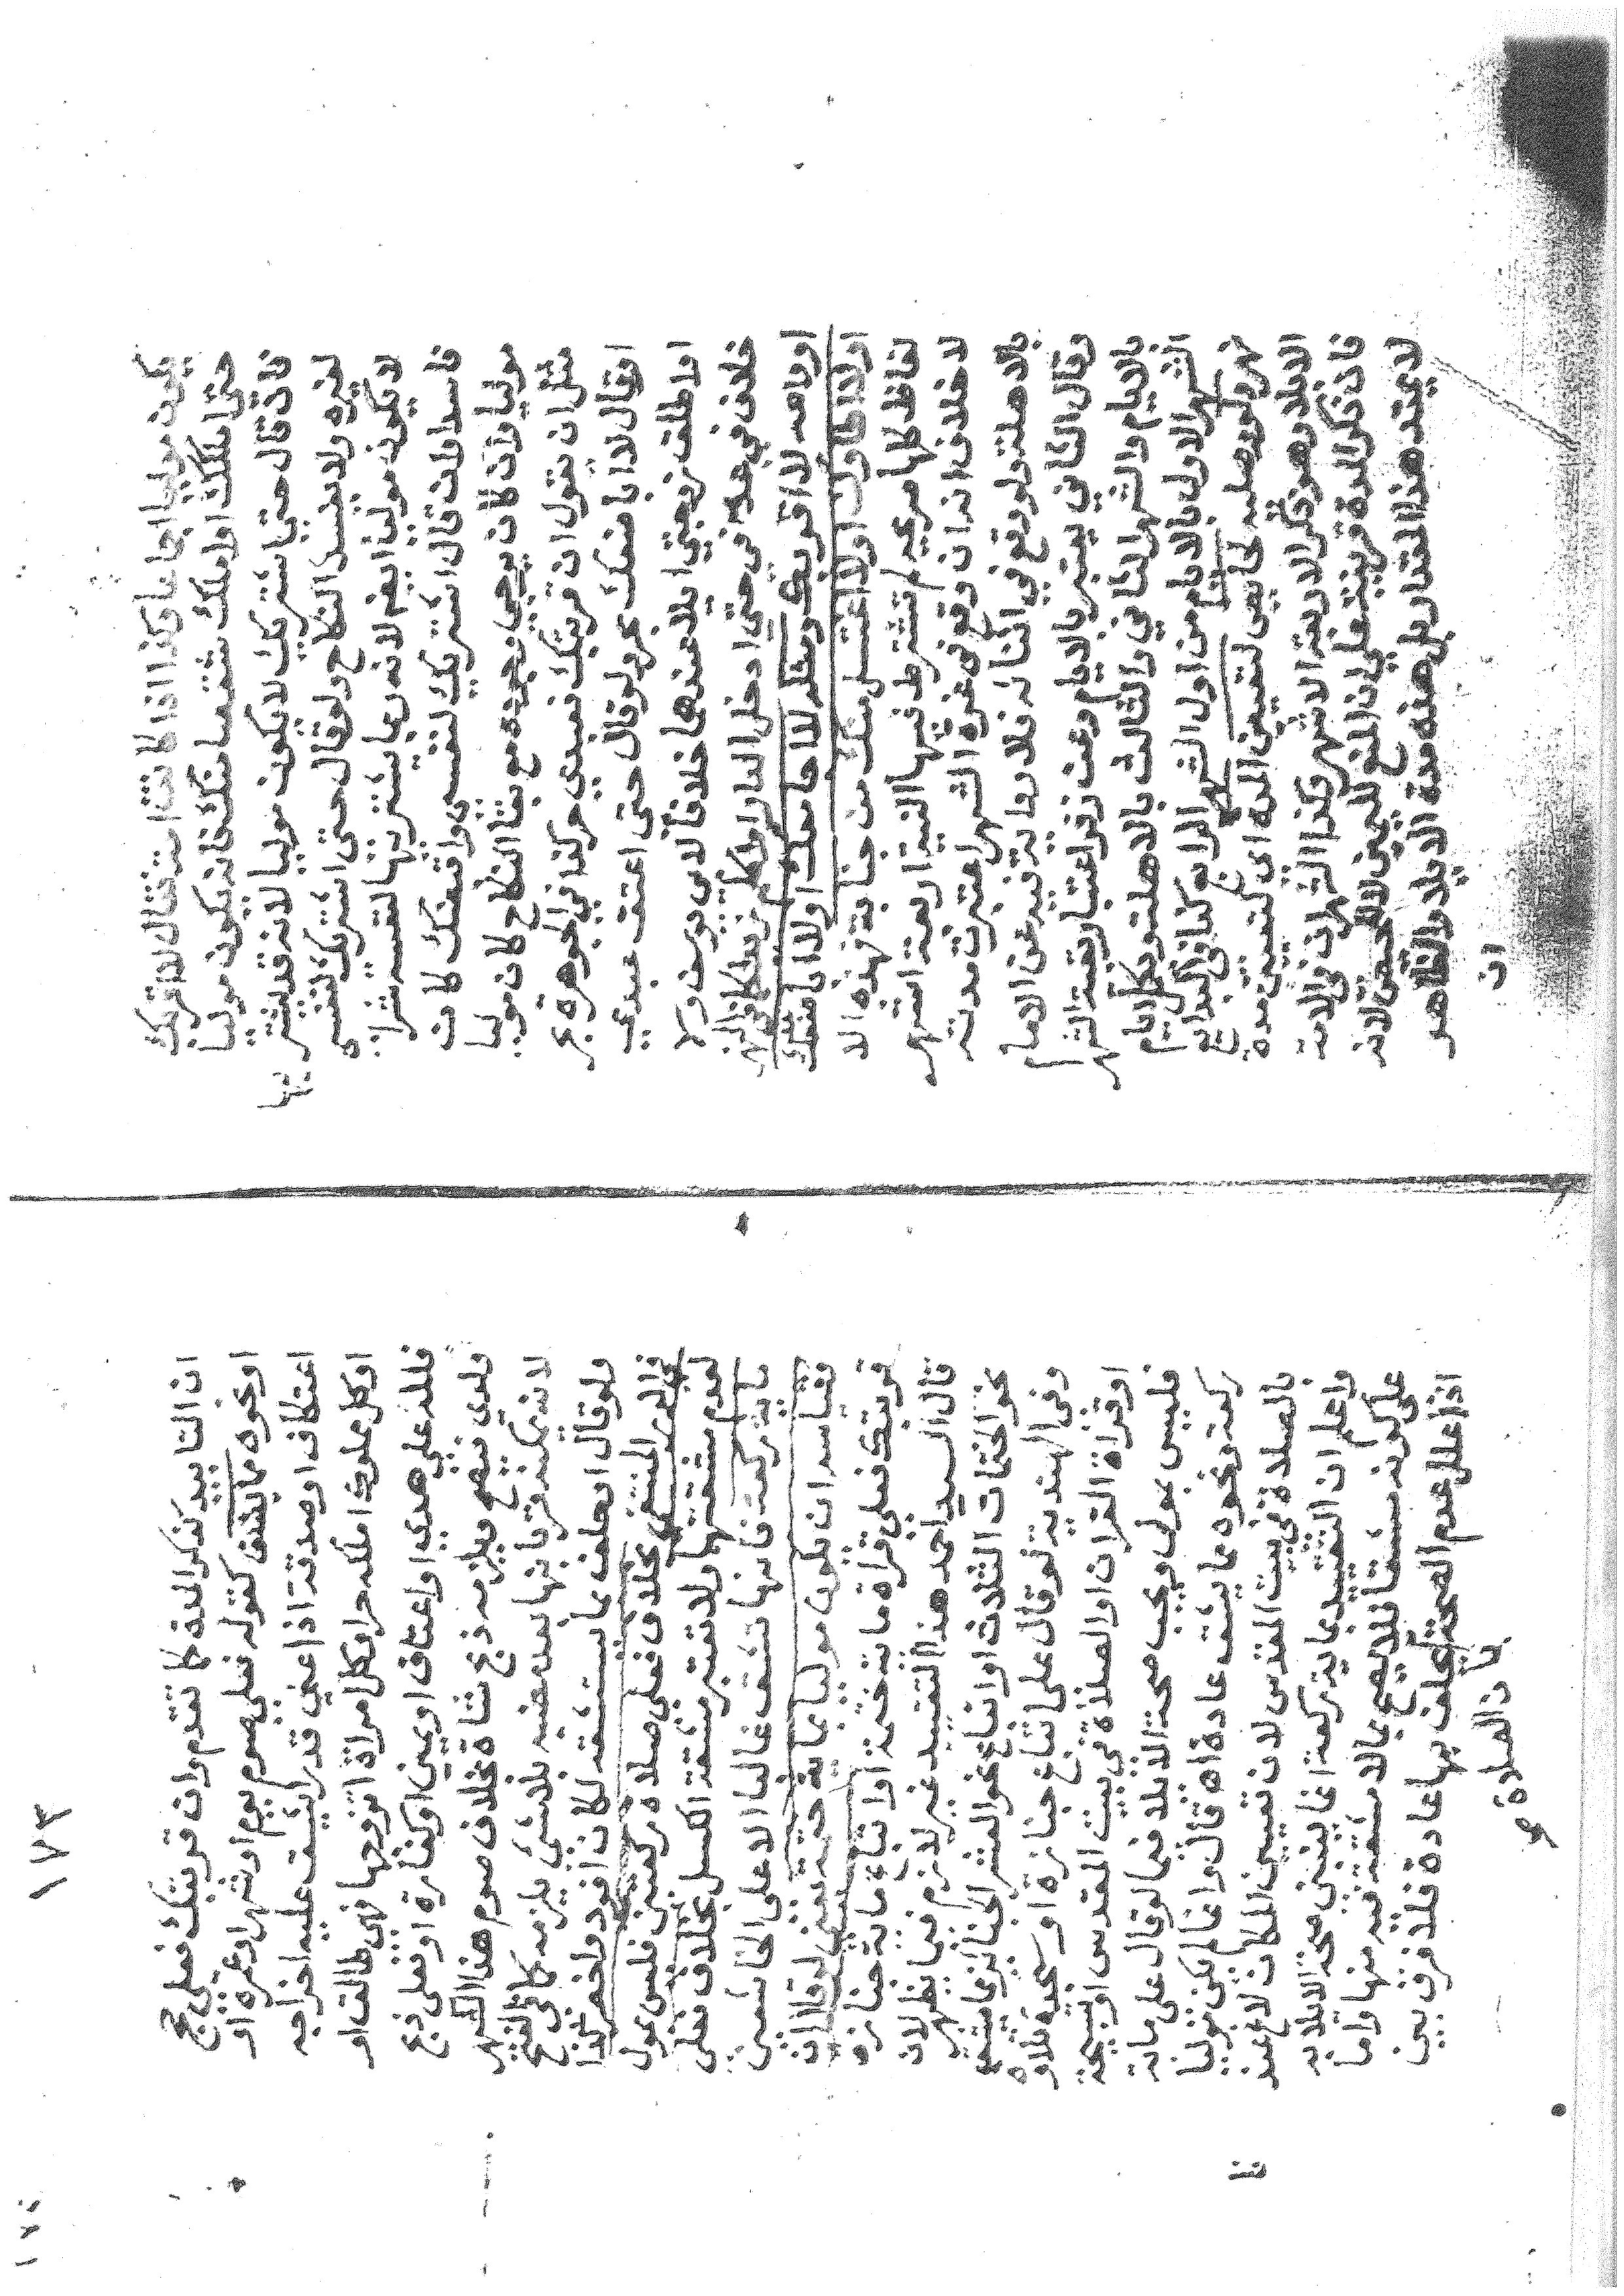 يكون موليا اجماعا وكذا اذا كانت امة فقال لا اقربك
حتى املكك او املك شقصا منك فانه يكون موليا
فان قال حتى اشتريك لا يكون موليا لانه قد يشتريها
لغيره ولا يفسد النكاح ولو قال حتى اشتريك لنفسي
لا يكون موليا ايضا لانه ربما يشتريها لنفسه شراء
فاسدا ولو قال اشتريك لنفسي واقبضك كان
موليا وان كان يرجى وجوده مع بقاء النكاح كان موليا
مثل ان يقول ان قربتك فعبدي حر كذا في الجوهرة
او قال لا اباضعك حتى اعتق عبدي
او اطلق زوجتي ايلاء عندهما خلافا لابي يوسف ولا
خلاف في عدمه في حتى ادخل الدار او اكلم زيدا
لا اقربك ومثله لا اجامعك او لا اباضعك
او لا اطاوك او لا اغتسل منك من جنابة فهذه الا
لفاظ كلها صريح لم تشترط فيها النية اربعة اشهر
لا خلاف انه ان وقع في غرة الشهر اعتبرت مدته
بالاهلة ولو وقع في اثنائه فلا رواية فيه عن الامام
وقال الثاني يعتبر بالايام وعن زفر اعتبار بقية الشهر
بالايام والشهر الثاني والثالث بالاهلة وتكمل ايام
الشهر الاول بالايام من اول الشهر الرابع كذا في البدايع
نهر لتعيين المدة اي لتعيين مدة
الايلاء هو ذكر الاربعة الاشهر وكذا القران في الاية
فان ذكر المدة قرينة على ان المنع لا للحيض لانه
لا يعتد هذا المقدار بل هذه مدة الايلاء والظاهر
ان
١٧٣
ان التابيد كذكر المدة كما تقدم وان قربتك فعلي حج
او نحوه مما يشق كقوله فعلي صوم يوم او شهر او عمرة او
اعتكاف او صدقة اذا عليه اخراجه
او كل مملوك املكه حر او كل امراة اتزوجها فهي طالق او
فلله علي هدي او اعتاق او يمين او كفارة او فعلي ذبح
ولدي فيصح ويلزمه ذبح شاة بخلاف صوم هذا الشهر
لانه يمكنه قربانها بعد مضيه بلا شي يلزمه كما في الفتح
ولو قال او يحلف بما يستشقه لكان افود واخصر كذا
في النهر بخلاف فعلي صلاة ركعتين فليس بمول
لعدم مشقتها ولا تعتبر مشقة الكسل بخلاف فعلي
ماية ركعة فانها تشق غالبا الا على الخاشعين
وقياسه ان يكون موليا بماية ختمة يعني لو قال ان
قربتك فعلي قراة ماية ختمة او اتباع ماية جنازة
قال السيد احمد هذا التقييد غير لازم فيما يظهر لان
نحو الختمات الثلاث او اتباع نحو العشر الجنائز مما يشق
وفي الهندية لو قال علي اتباع جنازة او سجدة تلاوة
او قراة القران او الصلاة في بيت المقدس او تسبيحة
فليس بمول ويجب صحة الايلاء فيما لو قال علي ماية
ركعة ونحوه مما يشق عادة اه قال وانما لم يكن موليا
بالصلاة في بيت المقدس لان تعيين المكان لاغ
واعلم ان التقييد بماية ركعة انما يبتني صحة الايلاء
على كونه مشقا فلا يصح بما لا مشقة فيه منها واما
اذا علل عدم الصحة بالحلف بها عادة فلا فرق بين
الصلاة